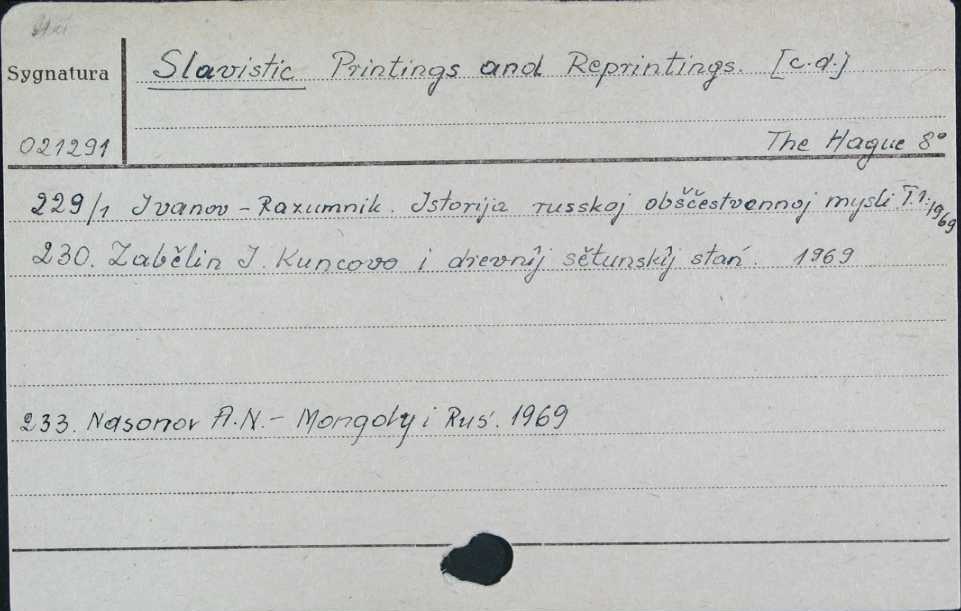 Sygnatura
Slavistic Printings and Reprintings. [c.d.]
021291
The Hague 8°
229/1 Ivanov - Razumnik. Istorija russkoj obščestvennoj mysli. T.1. 1969
230. Zabělin I. Kuncovo i drevnîj sětunskîj stań. 1969
233. Nasonov A.N. - Mongoly i Ruś. 1969